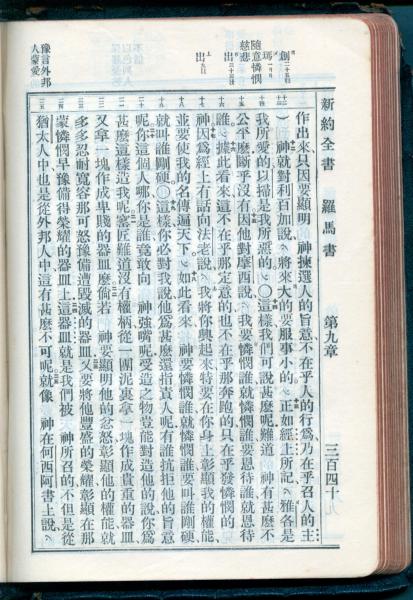 新約全書　羅馬書　第九章　三百四十
創
瑪
隨意憐憫
慈悲
出
出
豫言外邦
人蒙愛
作出來、只因要顯明　神揀選人的旨意、不在乎人的行為、乃在乎召人的主
）　神就對利百加說、將來大的要服事小的、正如經上所記、雅各是
我所愛的、以掃是我所惡的。〇這樣我們可說甚麼呢、難道　神有甚麼不
公平麼、斷乎沒有、因他對摩西說、我要憐憫誰、就憐憫誰、要恩待誰、就恩待
誰、據此看來、這不在乎那定意的、也不在乎那奔跑的、只在乎發憐憫的
神、因為經上有話向法老說、我將你興起來、特要在你身上彰顯我的權能、
並要使我的名傳遍天下、如此看來、　神要憐憫誰、就憐憫誰、要叫誰剛硬、
就叫誰剛硬。〇這樣、你必對我說、他為甚麼還指責人呢、有誰抗拒他的旨意
呢、你這個人哪、你是誰、竟敢向　神強嘴呢、受造之物豈能對造他的說、你為
甚麼這樣造我呢、窰匠難道沒有權柄、從一團泥裏、拿一塊作成貴重的器皿、
又拿一塊作成卑賤的器皿麼、倘若　神要顯明他的忿怒、彰顯他的權能、就
多多忍耐寬容那可怒豫備遭毀滅的器皿、又要將他豐盛的榮耀、彰顯在那
蒙憐憫早豫備得榮耀的器皿上、這器皿就是我們被　神所召的、不但是從
猶太人中、也是從外邦人中、這有甚麼不可呢、就像　神在何西阿書上說、